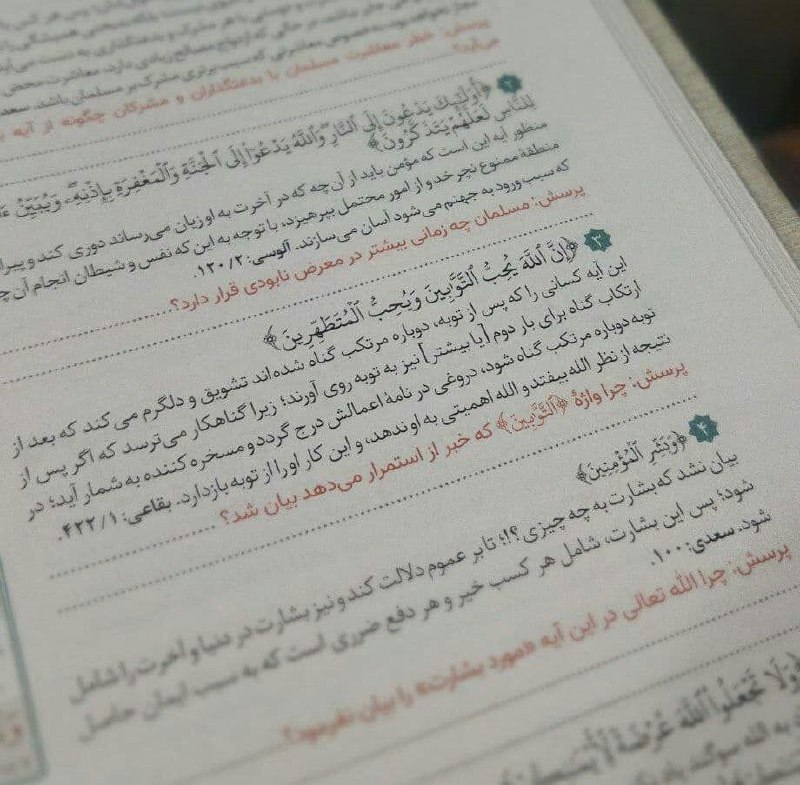 پرسش: خطر معاشرت مسلمان با بدعتگذاران و مشرکان چگونه از آیه
می‌آید؟
۲ ﴿أُولَٰئِكَ يَدْعُونَ إِلَى النَّارِ وَاللَّهُ يَدْعُو إِلَى الْجَنَّةِ وَالْمَغْفِرَةِ بِإِذْنِهِ وَيُبَيِّنُ
لِلنَّاسِ لَعَلَّهُمْ يَتَذَكَّرُونَ﴾
منظور آیه این است که مؤمن باید از آن‌چه که در آخرت به او زیان می‌رساند دوری کند و پیرا
منطقهٔ ممنوع نچرخد و از امور محتمل بپرهیزد، با توجه به این که نفس و شیطان انجام آن چ
که سبب ورود به جهنم می‌شود آسان می‌سازند. آلوسی: ۱۲۰/۲.
پرسش: مسلمان چه زمانی بیشتر در معرض نابودی قرار دارد؟
۳ ﴿إِنَّ اللَّهَ يُحِبُّ التَّوَّابِينَ وَيُحِبُّ الْمُتَطَهِّرِينَ﴾
این آیه کسانی را که پس از توبه، دوباره مرتکب گناه شده‌اند تشویق و دلگرم می کند که بعد از
ارتکاب گناه برای بار دوم [یا بیشتر] نیز به توبه روی آورند؛ زیرا گناهکار می‌ترسد که اگر پس از
توبه دوباره مرتکب گناه شود، دروغی در نامهٔ اعمالش درج گردد و مسخره کننده به شمار آید؛ در
نتیجه از نظر الله بیفتد و الله اهمیتی به او ندهد، و این کار او را از توبه بازدارد. بقاعی: ۴۲۲/۱.
پرسش: چرا واژهٔ ﴿التَّوَّابِينَ﴾ که خبر از استمرار می‌دهد بیان شد؟
۴ ﴿وَبَشِّرِ الْمُؤْمِنِينَ﴾
بیان نشد که بشارت به چه چیزی؟!؛ تا بر عموم دلالت کند و نیز بشارت در دنیا و آخرت را شامل
شود؛ پس این بشارت، شامل هر کسب خیر و هر دفع ضرری است که به سبب ایمان حاصل
شود. سعدی: ۱۰۰.
پرسش: چرا الله تعالی در این آیه «مورد بشارت» را بیان نفرمود؟
﴿وَلَا تَجْعَلُوا اللَّهَ عُرْضَةً لِأَيْمَانِكُمْ